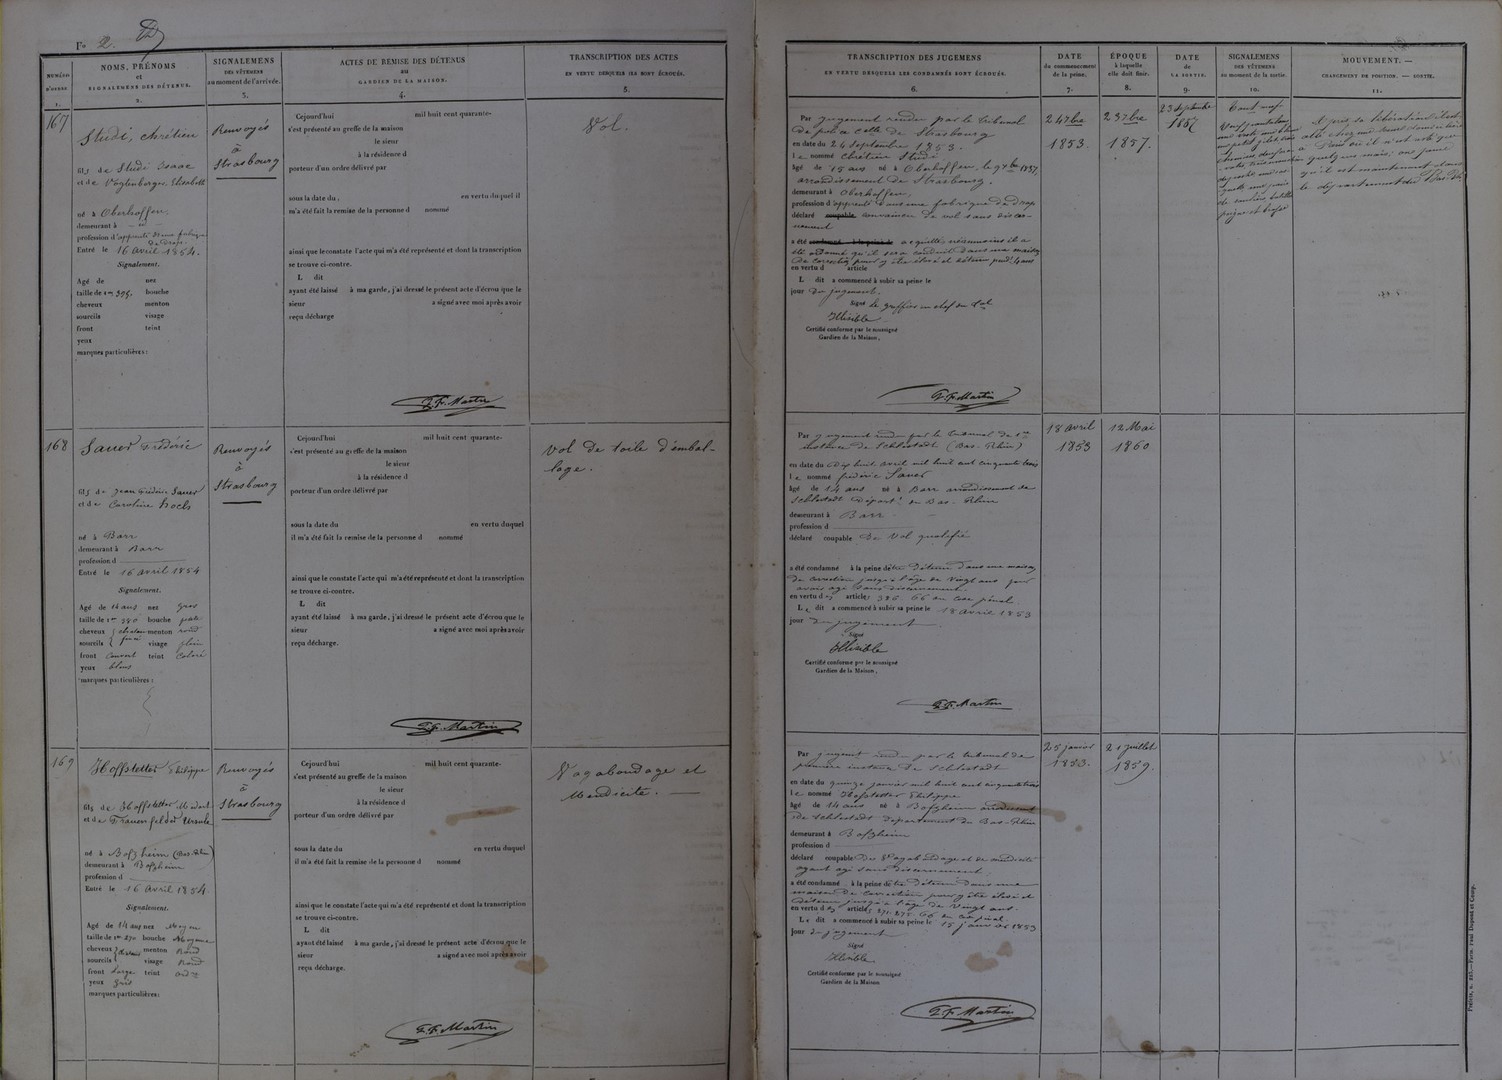 Fo 2.
NUMÉRO D'ORDRE 1.
NOMS, PRÉNOMS
et
SIGNALEMENS DES DÉTENUS.
2.
SIGNALEMENS
DES VÊTEMENS
au moment de l'arrivée.
3.
ACTES DE REMISE DES DÉTENUS
au
GARDIEN DE LA MAISON.
4.
TRANSCRIPTION DES ACTES
EN VERTU DESQUELS ILS SONT ÉCROUÉS.
5.
167
Studi, chrétien
fils de Studi Isaac
et de Voglenberger Elisabeth
né à Oberhoffen,
demeurant à - id -
profession d'apprenti d'une fabrique
de Drap.
Entré le 16 avril 1854.
Signalement.
Agé de nez
taille de 1m 395, bouche
cheveux menton
sourcils visage
front teint
yeux
marques particulières :
Renvoyés
à
Strasbourg
Cejourd'hui mil huit cent quarante-
s'est présenté au greffe de la maison
le sieur
à la résidence d
porteur d'un ordre délivré par
sous la date du , en vertu duquel il
m'a été fait la remise de la personne d nommé
ainsi que le constate l'acte qui m'a été représenté et dont la transcription
se trouve ci-contre.
L dit
ayant été laissé à ma garde, j'ai dressé le présent acte d'écrou que le
sieur a signé avec moi après avoir
reçu décharge
F. Fr. Martin
Vol.
168
Sauer Frédéric
fils de Jean Frédéric Sauer
et de Caroline Hochs
né à Barr
demeurant à Barr
profession d
Entré le 16 avril 1854
Signalement.
Agé de 14 ans nez gros
taille de 1m 380 bouche petite
cheveux chatain menton rond
sourcils foncé visage plein
front couvert teint coloré
yeux bleus
marques particulières :
Renvoyés
à
Strasbourg
Cejourd'hui mil huit cent quarante-
s'est présenté au greffe de la maison
le sieur
à la résidence d
porteur d'un ordre délivré par
sous la date du en vertu duquel
il m'a été fait la remise de la personne d nommé
ainsi que le constate l'acte qui m'a été représenté et dont la transcription
se trouve ci-contre.
L dit
ayant été laissé à ma garde, j'ai dressé le présent acte d'écrou que le
sieur a signé avec moi après avoir
reçu décharge.
F. Fr. Martin
Vol de toile d'embal-
lage.
169
Hoffstetter Philippe
fils de Hoffstetter
et de Frauenfelder Ursule
né à Bofzheim (Bas-Rhin)
demeurant à Bofzheim
profession d
Entré le 16 Avril 1854.
Signalement.
Agé de 14 ans nez Moyen
taille de 1m 270 bouche Moyenne
cheveux chatain menton Rond
sourcils visage Rond
front large teint ordre
yeux gris
marques particulières :
Renvoyés
à
Strasbourg
Cejourd'hui mil huit cent quarante-
s'est présenté au greffe de la maison
le sieur
à la résidence d
porteur d'un ordre délivré par
sous la date du en vertu duquel
il m'a été fait la remise de la personne d nommé
ainsi que le constate l'acte qui m'a été représenté et dont la transcription
se trouve ci-contre.
L dit
ayant été laissé à ma garde, j'ai dressé le présent acte d'écrou que le
sieur a signé avec moi après avoir
reçu décharge.
F. Fr. Martin
Vagabondage et
Mendicité. —
TRANSCRIPTION DES JUGEMENS
EN VERTU DESQUELS LES CONDAMNÉS SONT ÉCROUÉS.
6.
DATE
du commencement
de la peine.
7.
ÉPOQUE
à laquelle
elle doit finir.
8.
DATE
de
LA SORTIE.
9.
SIGNALEMENS
DES VÊTEMENS
au moment de la sortie.
10.
MOUVEMENT. —
CHANGEMENT DE POSITION. — SORTIE.
11.
Par jugement rendu par le tribunal
de police de Strasbourg
en date du 24 Septembre 1853.
le nommé Chrétien Studi
âgé de 15 ans né à Oberhoffen, le 9 bre 1837,
arrondissement de Strasbourg.
demeurant à Oberhoffen,
profession d'apprenti dans une fabrique de drap
déclaré coupable convaincu de vol sans discer-
nement
a été condamné à la peine de acquitté néanmoins il a
été ordonné qu'il sera conduit dans une maison
de correction pour y être élevé et détenu pend. 4 ans
en vertu d article
L dit a commencé à subir sa peine le
jour du jugement.
Signé Le greffier en chef
Illisible
Certifié conforme par le soussigné
Gardien de la Maison,
F. Fr. Martin
24 7bre
1853.
23 7bre
1857.
23 Septembre
1857
Par jugement rendu par le tribunal de 1re
instance de Schlestadt (Bas-Rhin)
en date du dix huit avril mil huit cent cinquante trois
le nommé frédéric Sauer
âgé de 14 ans né à Barr arrondissement de
Schlestadt Départ. du Bas-Rhin
demeurant à Barr
profession d
déclaré coupable de vol qualifié
a été condamné à la peine d'être détenu dans une maison
de correction jusqu'à l'âge de vingt ans pour
avoir agi sans discernement
en vertu des articles 386. 66 du Code pénal
Le dit a commencé à subir sa peine le 18 avril 1853
jour du jugement
Signé
Illisible
Certifié conforme par le soussigné
Gardien de la Maison,
F. Fr. Martin
18 avril
1853
12 Mai
1860
Par jugement rendu par le tribunal de
première instance de Schlestadt
en date du quinze janvier mil huit cent cinquante trois
le nommé Hoffstetter Philippe
âgé de 14 ans né à Bofzheim arrondissement
de Schlestadt département du Bas-Rhin
demeurant à Bofzheim
profession d
déclaré coupable de Vagabondage et de mendicité
ayant agi sans discernement
a été condamné à la peine d'être détenu dans une
maison de correction pour y être élevé et
détenu jusqu'à l'âge de vingt ans.
en vertu des articles 271. 275. 66 du Code pénal
Le dit a commencé à subir sa peine le 15 janvier 1853
jour du jugement
Signé
Illisible
Certifié conforme par le soussigné
Gardien de la Maison
F. Fr. Martin
25 janvier
1853.
21 juillet
1859.